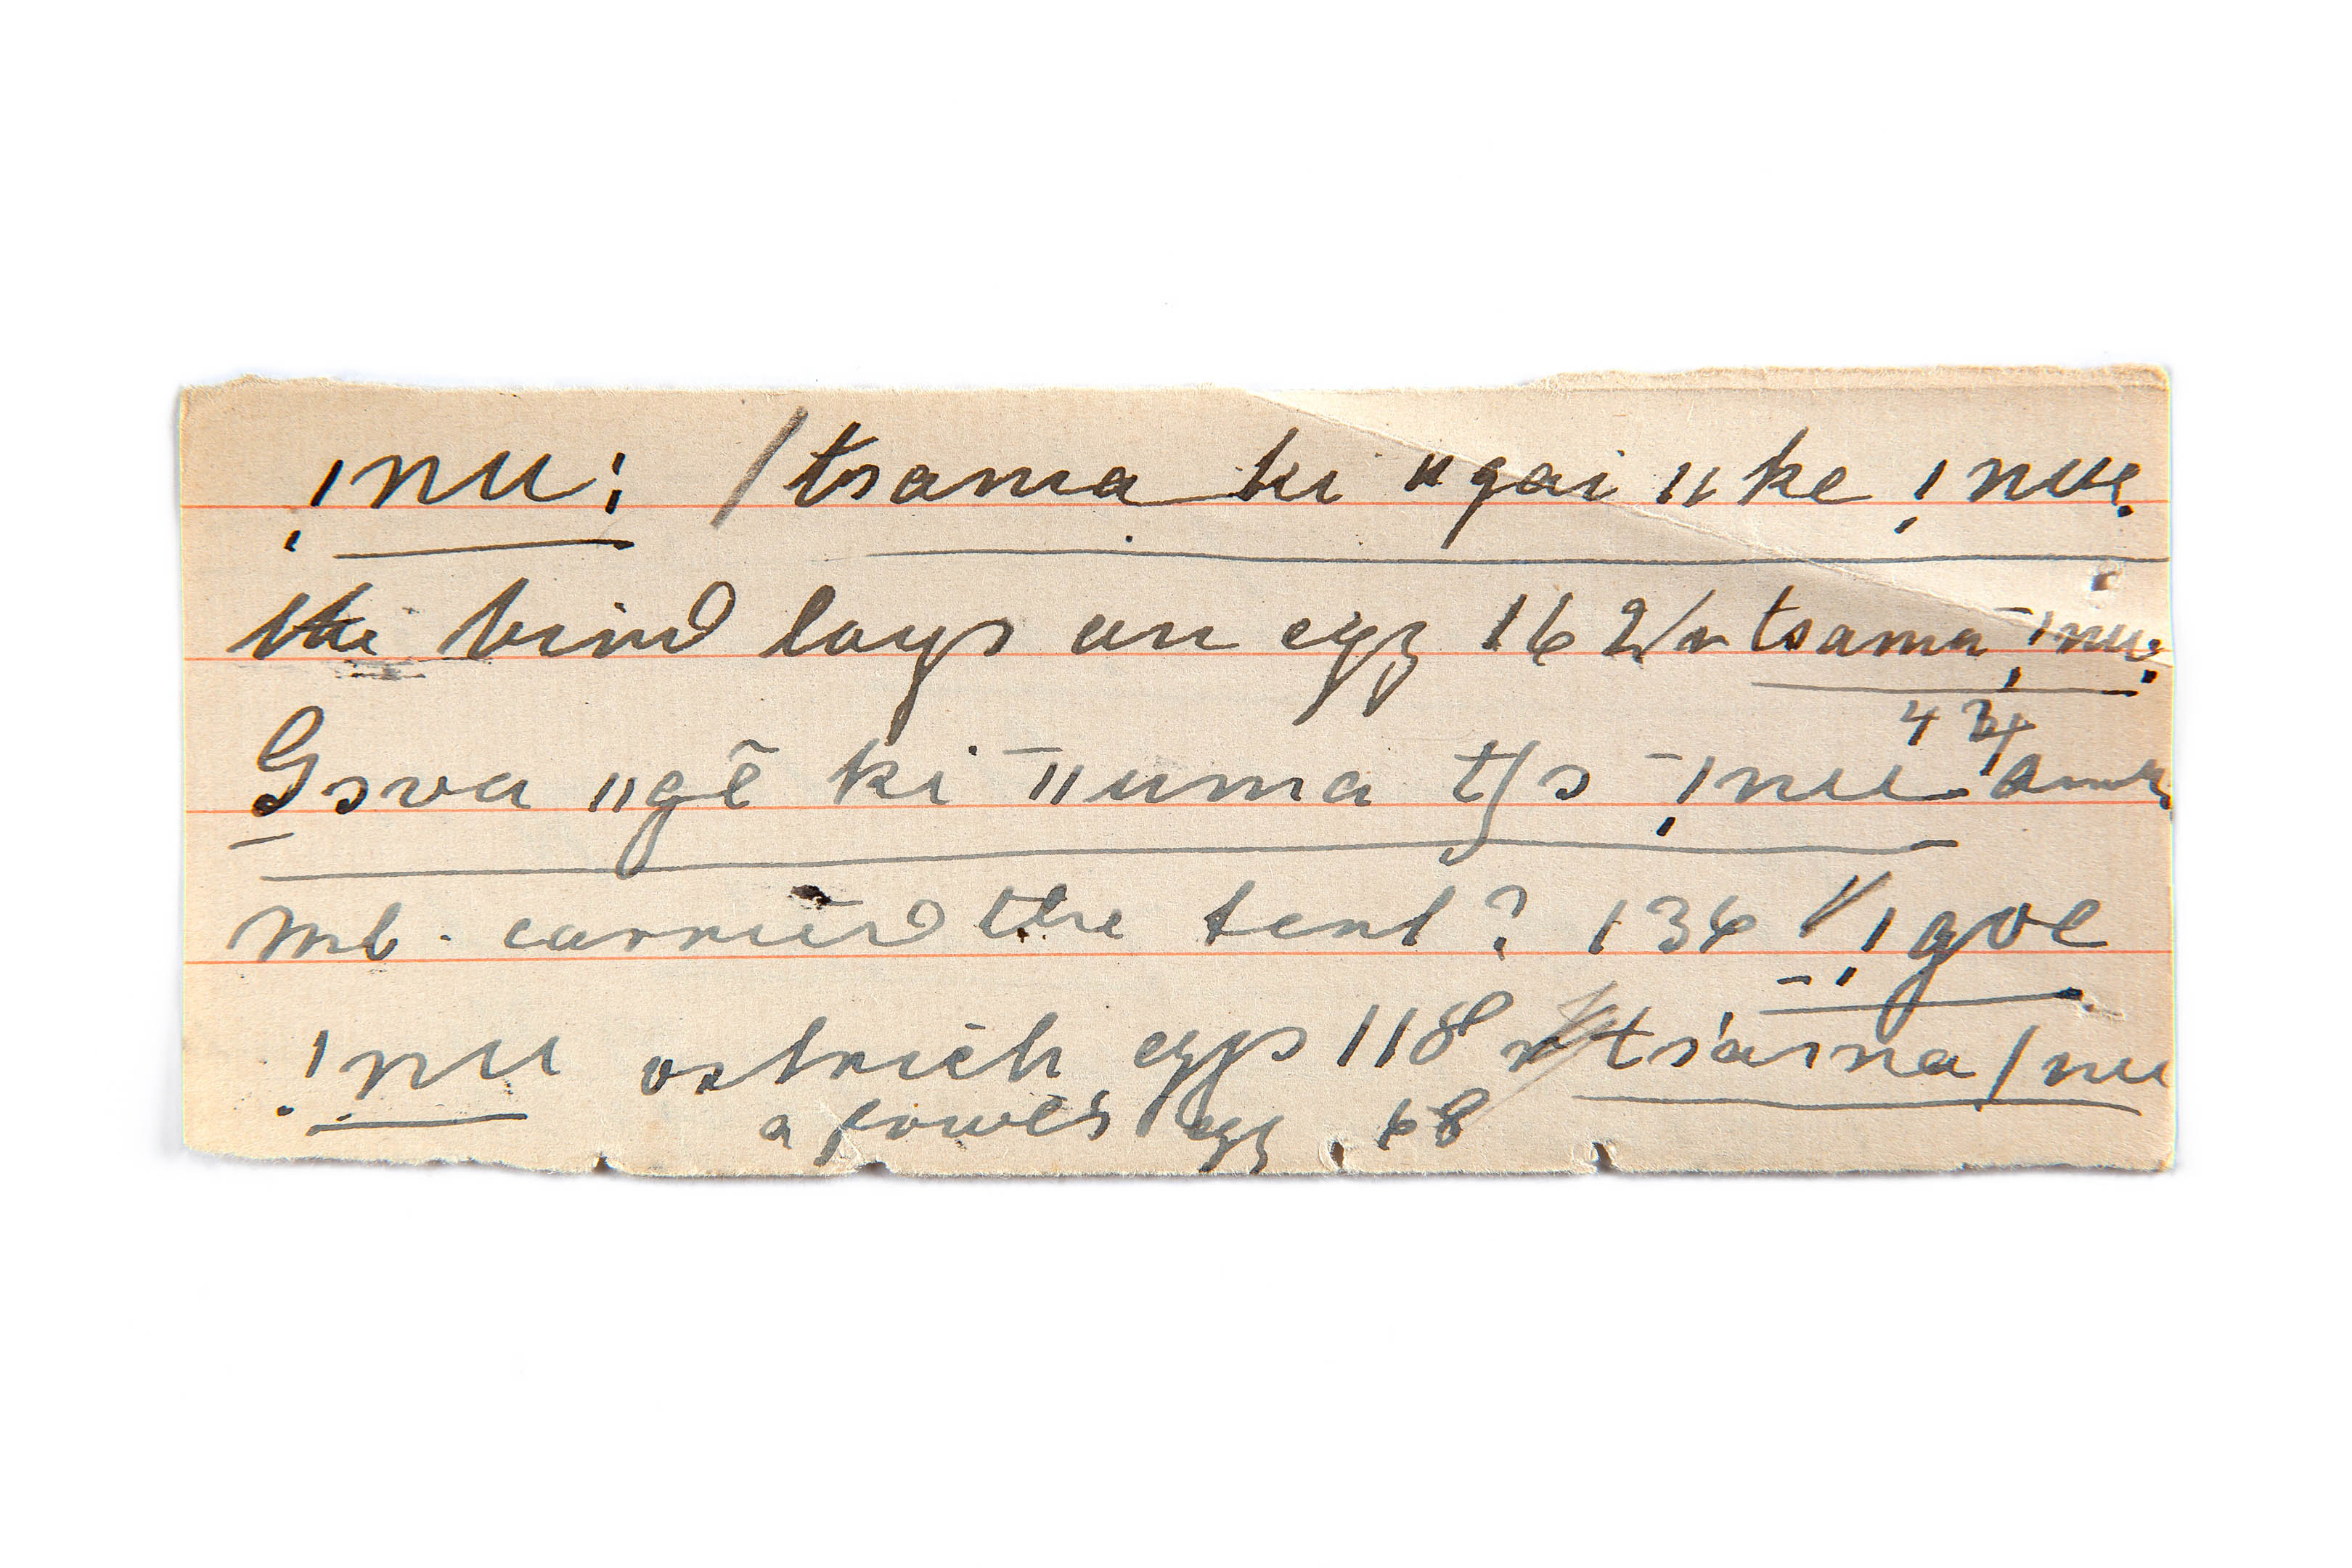 !nu: /tsama ki ǁgai ǁke !nue.
the bird lays an egg 162/ tsama !nu.
434
Gɔva ǁgẽ ki ǁuma t/ɔ !nu.
Mb. carried the tent? 136 !goe
!nu ostrich eggs 118 tsama /nu
a fowl's egg. 68